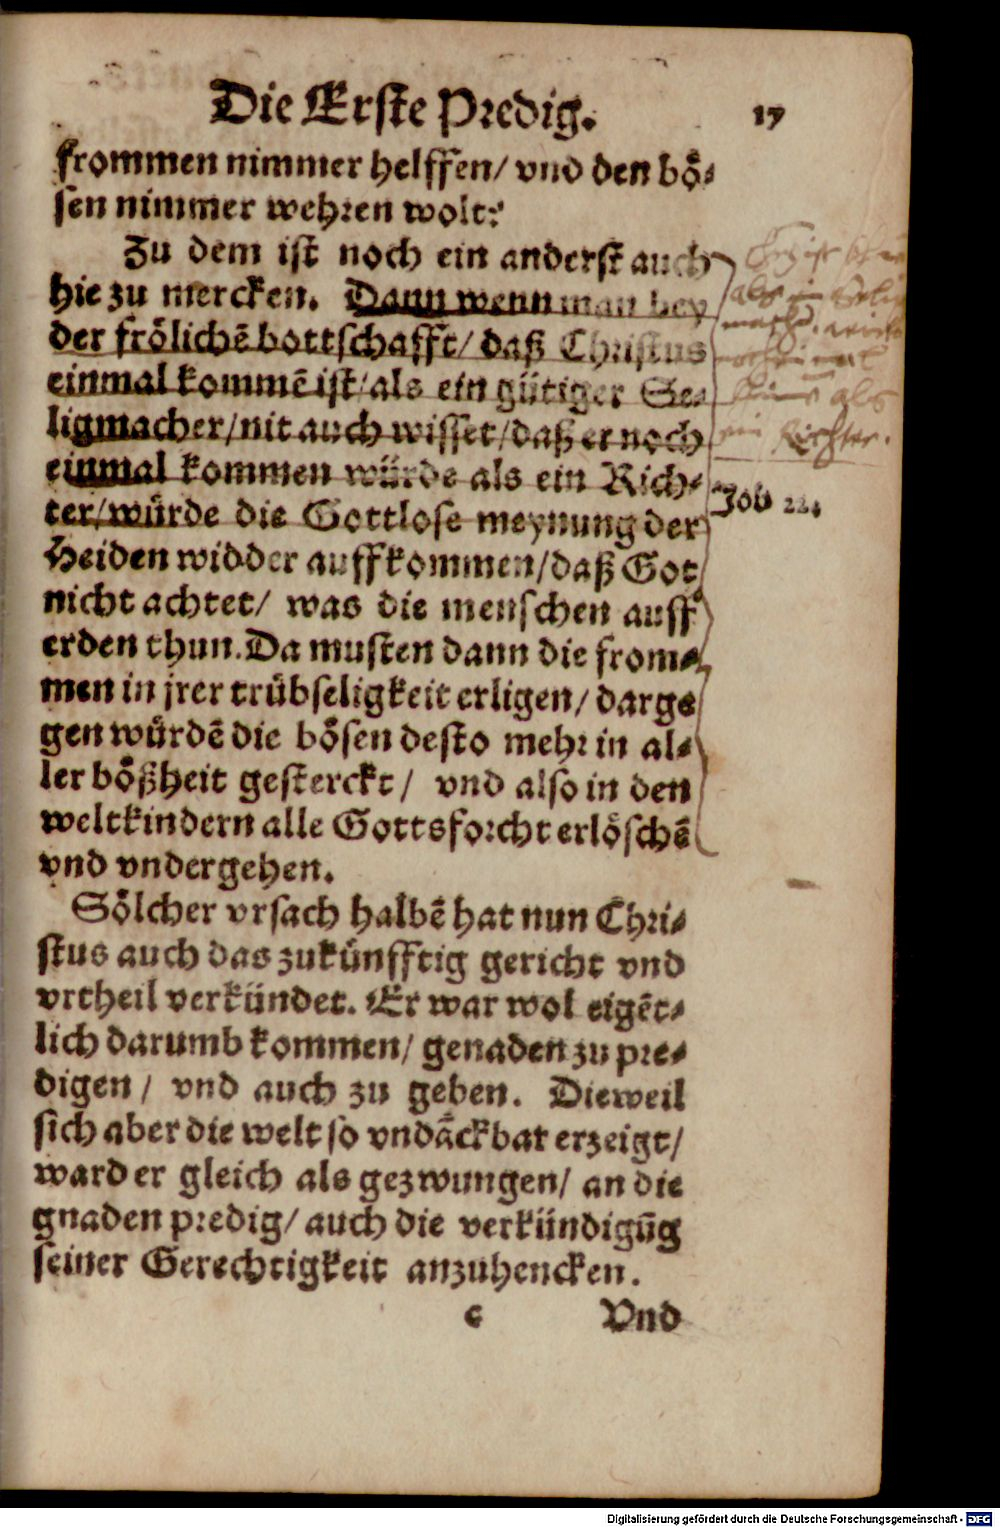 Die Erste Predig. 17
frommen nimmer helffen/ vnd den bö-
sen nimmer wehren wolt?
Zu dem ist noch ein anderst auch
hie zu mercken. Dann wenn man bey
der frölichē bottschafft/ daß Christus
einmal kommē ist/ als ein gütiger Se-
ligmacher/ nit auch wisset/ daß er noch
einmal kommen würde als ein Rich-
ter/ würde die Gottlose meynung der
Heiden widder auffkommen/ daß Got
nicht achtet/ was die menschen auff
erden thun. Da musten dann die from-
men in jrer trübseligkeit erligen/ darge
gen würdē die bösen desto mehr in al-
ler bößheit gesterckt/ vnd also in den
weltkindern alle Gottsforcht erlöschē
vnd vndergehen.
Sölcher vrsach halbē hat nun Chri-
stus auch das zukünfftig gericht vnd
vrtheil verkündet. Er war wol eigēt-
lich darumb kommen/ genaden zu pre-
digen/ vnd auch zu geben. Dieweil
sich aber die welt so vndāckbar erzeigt/
ward er gleich als gezwungen/ an die
gnaden predig/ auch die verkündigūg
seiner Gerechtigkeit anzuhencken.
c Vnd
als
ein Richter.
Job 22.
Digitalisierung gefördert durch die Deutsche Forschungsgemeinschaft - DFG